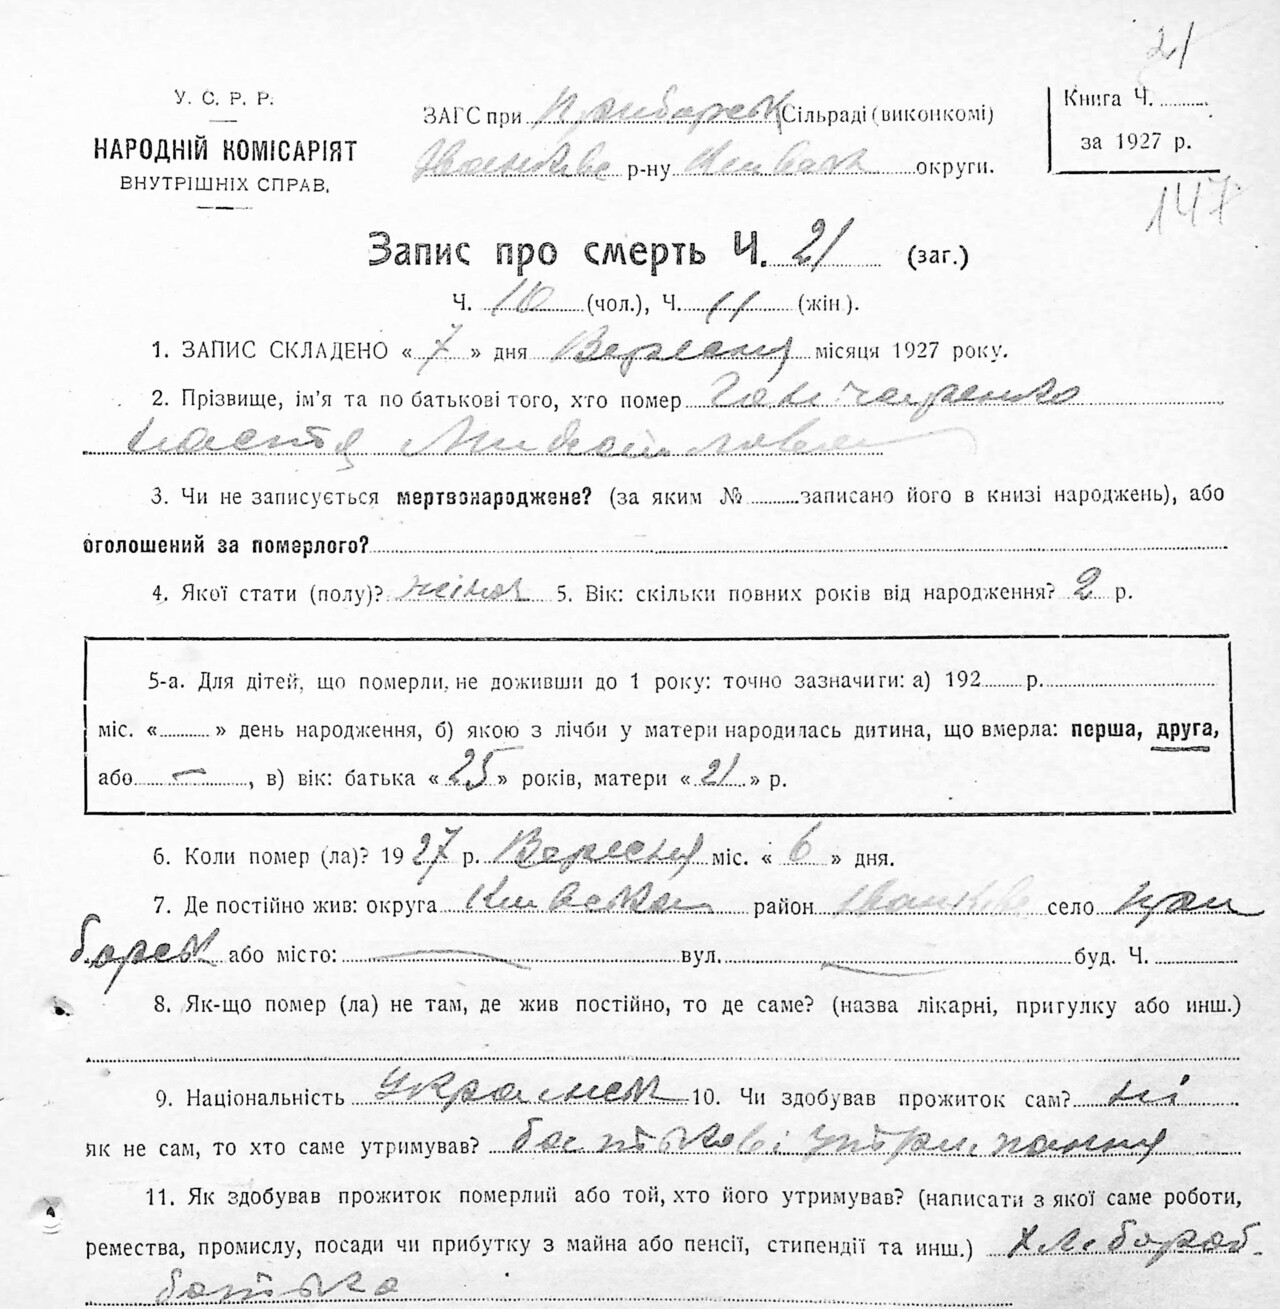 21
У. С. Р. Р.
НАРОДНІЙ КОМІСАРІЯТ
ВНУТРІШНІХ СПРАВ.
ЗАГС при Приборськ Сільраді (виконкомі)
Іванків р-ну Київськ округи.
Книга Ч.
за 1927 р.
147
Запис про смерть Ч. 21 (заг.)
Ч. 10 (чол.), Ч. 11 (жін).
1. ЗАПИС СКЛАДЕНО « 7 » дня Вересня місяця 1927 року.
2. Прізвище, ім'я та по батькові того, хто помер
Настя Михайловна
3. Чи не записується мертвонароджене? (за яким № записано його в книзі народжень), або
оголошений за померлого?
4. Якої стати (полу)? жіноч 5. Вік: скільки повних років від народження? 2 р.
5-а. Для дітей, що померли, не доживши до 1 року: точно зазначити: а) 192 р.
міс. « » день народження, б) якою з лічби у матери народилась дитина, що вмерла: перша, друга,
або —, в) вік: батька « 25 » років, матери « 21 » р.
6. Коли помер (ла)? 1927 р. Вересня міс. « 6 » дня.
7. Де постійно жив: округа Київська район Іванків село При
борськ або місто: — вул. — буд. Ч.
8. Як-що помер (ла) не там, де жив постійно, то де саме? (назва лікарні, пригулку або инш.)
9. Національність Украінськ 10. Чи здобував прожиток сам? ні
як не сам, то хто саме утримував? батькові утримання
11. Як здобував прожиток померлий або той, хто його утримував? (написати з якої саме роботи,
ремества, промислу, посади чи прибутку з майна або пенсії, стипендії та инш.) Хлібороб
батько